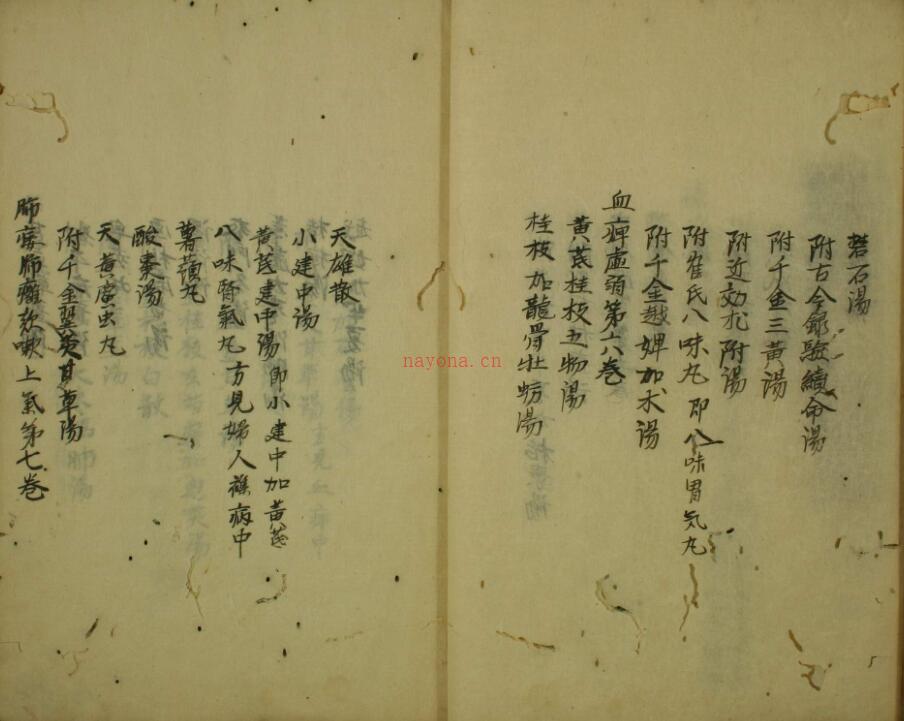 礬石湯
附古今錄驗續命湯
附千金三黃湯
附近効朮附湯
附崔氏八味丸即八味胃気丸
附千金越婢加朮湯
血痺虛勞第六卷
黃芪桂枝五物湯
桂枝加龍骨牡蛎湯
天雄散
小建中湯
黃芪建中湯即小建中加黃芪
八味腎氣丸方見婦人雜病中
薯蕷丸
酸棗湯
大黃䗪虫丸
附千金翼炙甘草湯
肺痿肺癰欬嗽上氣第七卷
nayona.cn